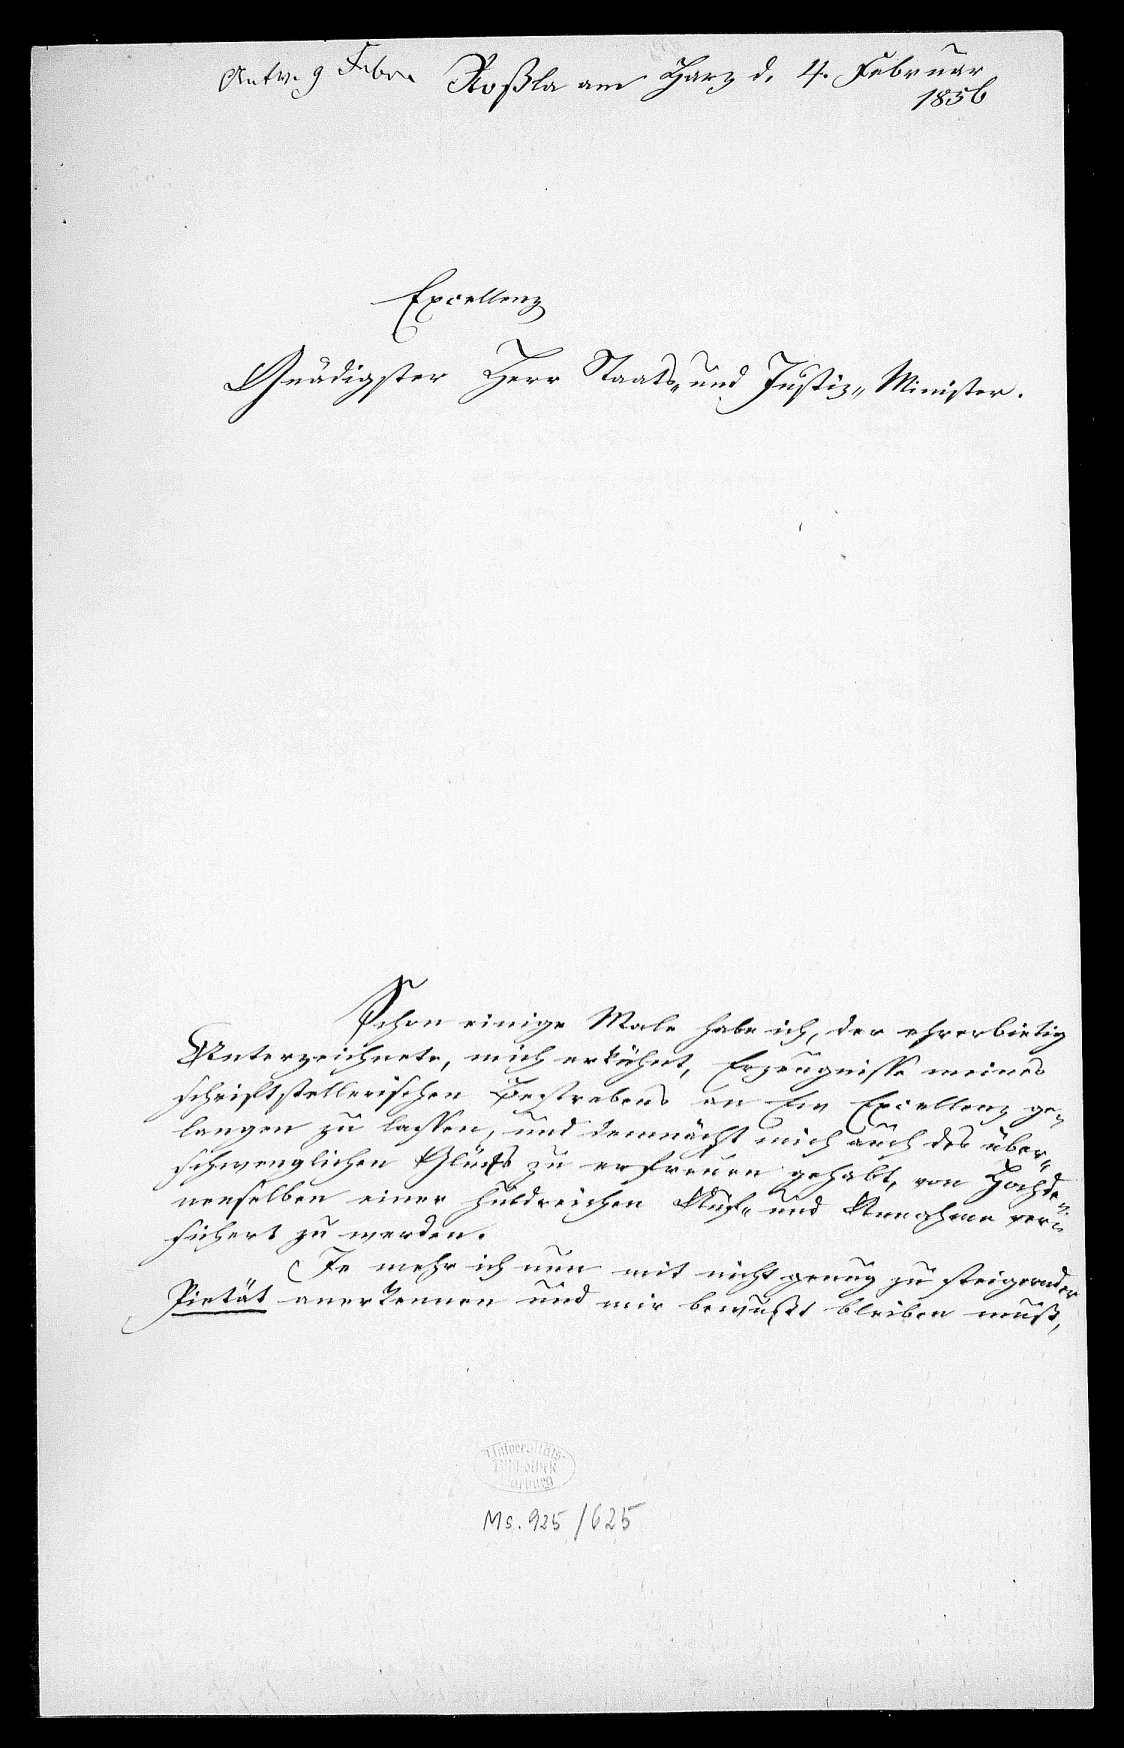 Antw. 9 Febr. Roßla am Harz d. 4. Februar
1856
Excellenz
Gnädigster Herr Staats- und Justiz-Minister.
Schon einige Male habe ich, der ehrerbietig
Unterzeichnete, mich erkühnt, Erzeugnisse meines
schriftstellerischen Bestrebens an Ew Excellenz ge-
langen zu lassen, und demnächst mich auch des über-
schwenglichen Glücks zu erfreuen gehabt, von Hochde-
nenselben einer huldreichen Auf- und Annahme ver-
sichert zu werden.
Je mehr ich nun mit nicht genug zu steigernder
Pietät anerkennen und mir bewußt bleiben muß,
Univers
thek
Ms. 925/625